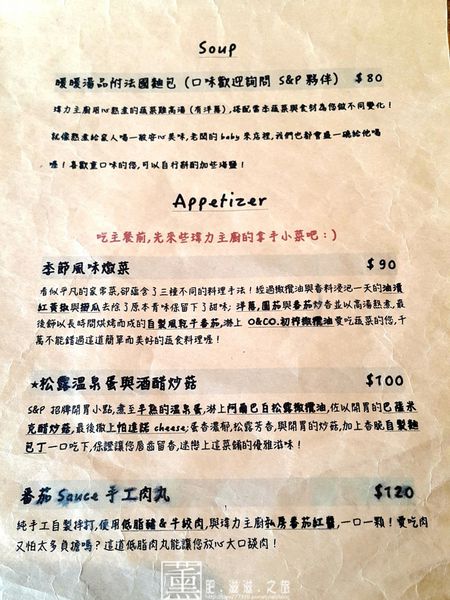 Soup
暖暖湯品附法國麵包 (口味歡迎詢問 S&P 夥伴) $80
瑋力主廚用心熬煮的蔬菜雞高湯 (有洋蔥), 搭配當季蔬菜與食材為您做不同變化!
就像熬煮給家人喝一般安心美味, 老闆的 baby 來店裡, 我們也都會盛一碗給他喝
喔! 喜歡重口味的您, 可以自行斟酌加些海鹽!
Appetizer
吃主餐前, 先來些瑋力主廚的拿手小菜吧 : )
季節風味燉菜 $90
看似平凡的家常菜, 卻蘊含了三種不同的料理手法! 經過橄欖油與香料浸泡一天的油漬
紅黃椒與櫛瓜去除了原本青味保留下了甜味; 洋蔥, 圓茄與番茄炒香並以高湯熬煮, 最
後飾以長時間烘烤而成的自製風乾牛番茄, 淋上 O&CO. 初榨橄欖油 愛吃蔬菜的您, 千
萬不能錯過這道簡單而美好的蔬食料理喔!
★松露溫泉蛋與酒醋炒菇 $100
S&P 招牌開胃小點, 煮至半熟的溫泉蛋, 淋上阿爾巴白松露橄欖油, 佐以開胃的巴薩米
克醋炒菇, 最後撒上帕達諾 cheese; 蛋香濃郁, 松露芳香, 與開胃的炒菇, 加上香脆自製麵
包丁一口吃下, 保證讓您唇齒留香, 迷戀上這菜餚的優雅滋味!
番茄 Sauce 手工肉丸 $120
純手工自製摔打, 使用低脂豬 & 牛絞肉, 與瑋力主廚私房番茄紅醬, 一口一顆! 愛吃肉
又怕太多負擔嗎? 這道低脂肉丸能讓您放心大口談肉!
薰 肥.滋滋.之旅